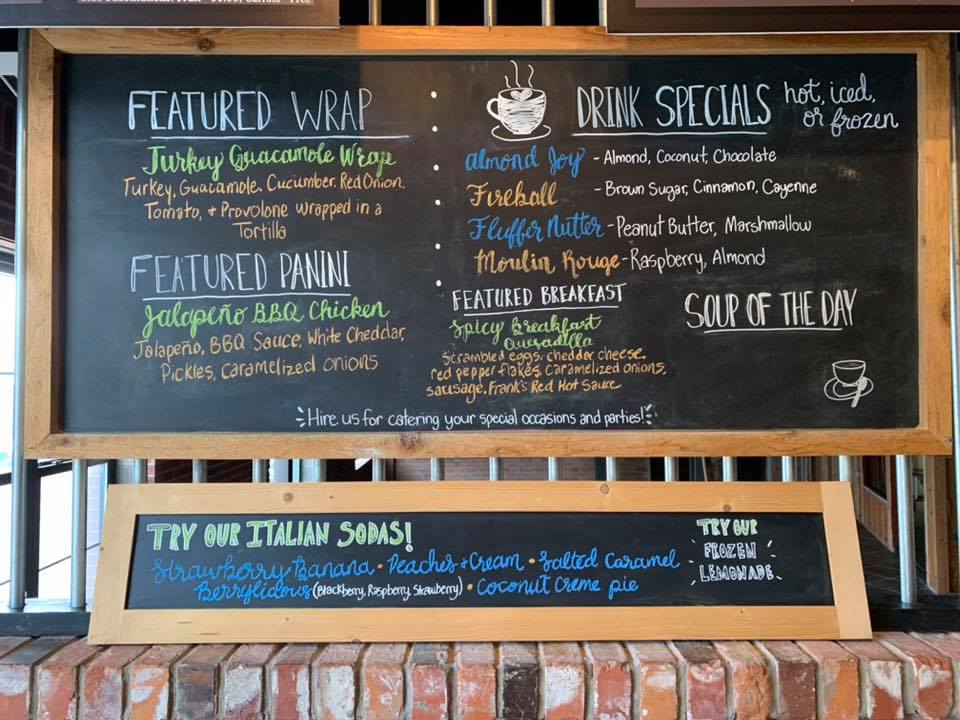 FEATURED WRAP
Turkey Guacamole Wrap
Turkey, Guacamole, Cucumber, Red Onion,
Tomato, + Provolone wrapped in a
Tortilla
FEATURED PANINI
Jalapeño BBQ Chicken
Jalapeño, BBQ Sauce, White Cheddar,
Pickles, Caramelized onions
DRINK SPECIALS
hot, iced,
or frozen
Almond Joy - Almond, Coconut, Chocolate
Fireball - Brown Sugar, Cinnamon, Cayenne
Fluffer Nutter - Peanut Butter, Marshmallow
Moulin Rouge - Raspberry, Almond
FEATURED BREAKFAST
Spicy Breakfast
Quesadilla
Scrambled eggs, cheddar cheese,
red pepper flakes, caramelized onions,
sausage, Frank's Red Hot Sauce
SOUP OF THE DAY
Hire us for catering your special occasions and parties!
TRY OUR ITALIAN SODAS!
Strawberry Banana • Peaches + Cream • Salted Caramel
Berrylicious (Blackberry, Raspberry, Strawberry) • Coconut Creme pie
TRY OUR
FROZEN
LEMONADE